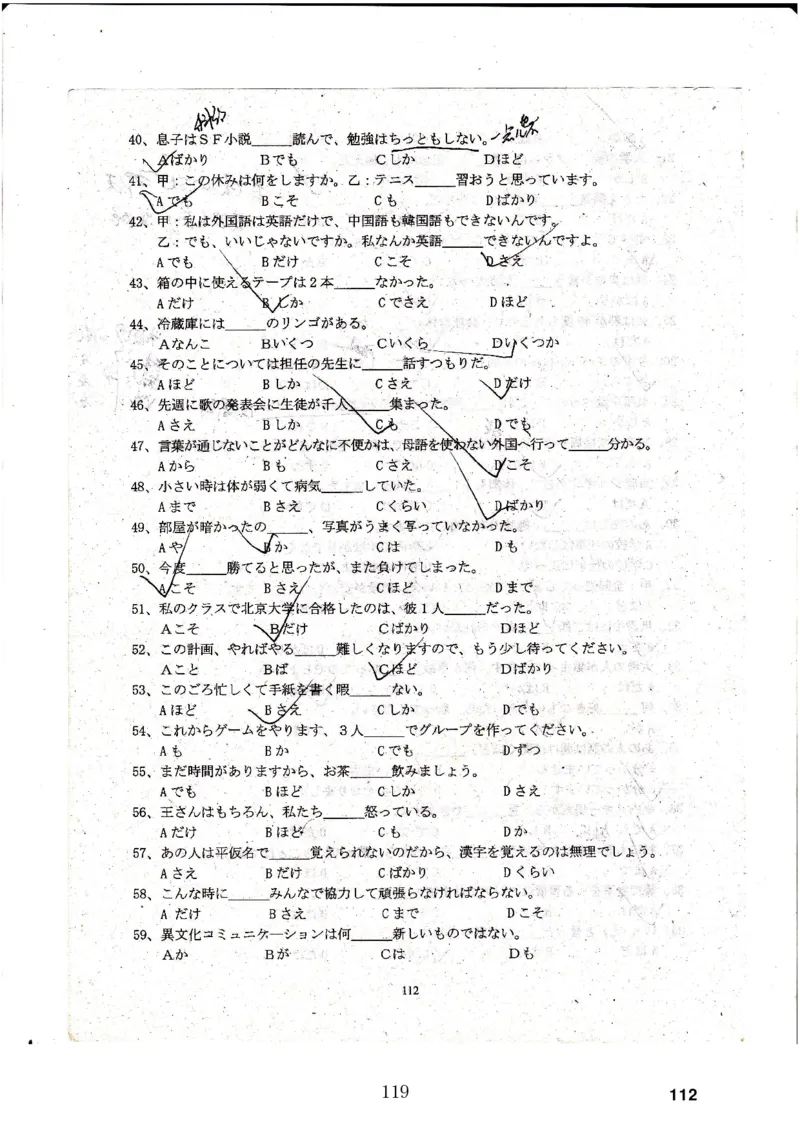 科幻
40、息子はＳＦ小説_____読んで、勉強はちっともしない。一点儿不
Aばかり Bでも Cしか Dほど
41、甲：この休みは何をしますか。乙：テニス_____習おうと思っています。
Aでも Bこそ Cも Dばかり
42、甲：私は外国語は英語だけで、中国語も韓国語もできないんです。
乙：でも、いいじゃないですか。私なんか英語_____できないんですよ。
Aでも Bだけ Cこそ Dさえ
43、箱の中に使えるテープは２本_____なかった。
Aだけ Bしか Cでさえ Dほど
44、冷蔵庫には_____のリンゴがある。
Aなんこ Bいくつ Cいくら Dいくつか
45、そのことについては担任の先生に_____話すつもりだ。
Aほど Bしか Cさえ Dだけ
46、先週に歌の発表会に生徒が千人_____集まった。
Aさえ Bしか Cも Dでも
47、言葉が通じないことがどんなに不便かは、母語を使わない外国へ行って_____分かる。
Aから Bも Cさえ Dこそ
48、小さい時は体が弱くて病気_____していた。
Aまで Bさえ Cくらい Dばかり
49、部屋が暗かったの_____、写真がうまく写っていなかった。
Aや Bか Cは Dも
50、今度_____勝てると思ったが、また負けてしまった。
Aこそ Bさえ Cほど Dまで
51、私のクラスで北京大学に合格したのは、彼１人_____だった。
Aこそ Bだけ Cばかり Dほど
52、この計画、やればやる_____難しくなりますので、もう少し待ってください。
Aこと Bば Cほど Dばかり
53、このごろ忙しくて手紙を書く暇_____ない。
Aほど Bさえ Cしか Dでも
54、これからゲームをやります、３人_____でグループを作ってください。
Aも Bか Cでも Dずつ
55、まだ時間がありますから、お茶_____飲みましょう。
Aでも Bほど Cしか Dさえ
56、王さんはもちろん、私たち_____怒っている。
Aだけ Bほど Cも Dか
57、あの人は平仮名で_____覚えられないのだから、漢字を覚えるのは無理でしょう。
Aさえ Bだけ Cばかり Dくらい
58、こんな時に_____みんなで協力して頑張らなければならない。
A だけ Bさえ Cまで Dこそ
59、異文化コミュニケーションは何_____新しいものではない。
Aか Bが Cは Dも
112
119
112